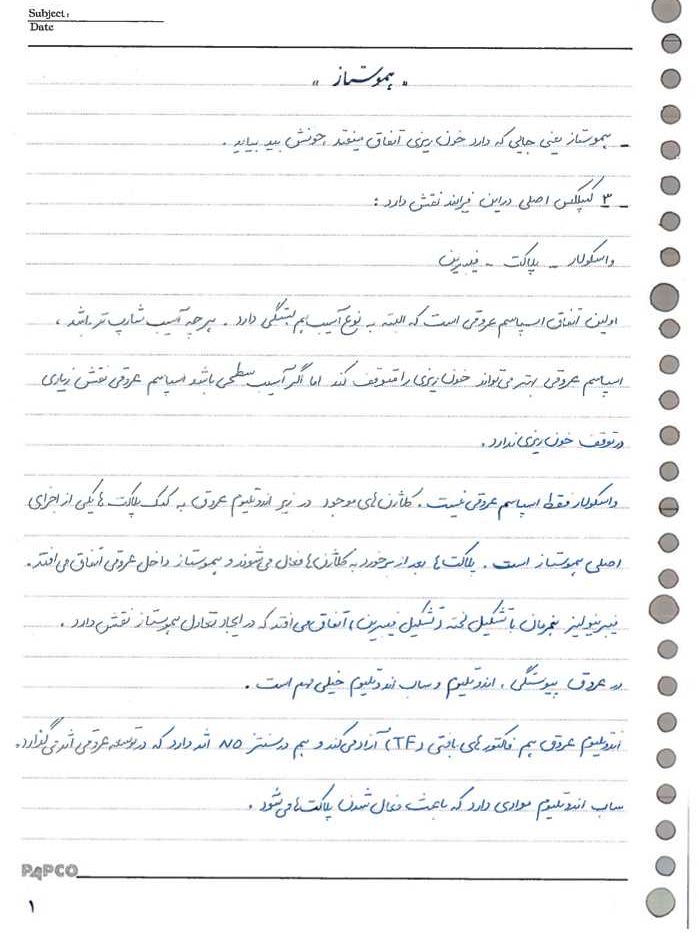 Subject:
Date
" هموستاز "
- هموستاز یعنی جایی که دارد خون ریزی اتفاق میفتد، خونش بند بیاید.
- ۳ کمپلکس اصلی در این فرایند نقش دارد:
واسکولار - پلاکت - فیبرین
اولین اتفاق اسپاسم عروقی است که البته به نوع آسیب هم بستگی دارد. هر چه آسیب شارپ تر باشد،
اسپاسم عروقی بهتر می تواند خون ریزی را متوقف کند اما اگر آسیب سطحی باشد اسپاسم عروقی نقش زیادی
در توقف خون ریزی ندارد.
واسکولار فقط اسپاسم عروقی نیست. کلاژن های موجود در زیر اندوتلیوم عروق به کمک پلاکت ها یکی از اجزای
اصلی هموستاز است. پلاکت ها بعد از برخورد به کلاژن ها فعال می شوند و هموستاز داخل عروقی اتفاق می افتد.
فیبرینولیز همزمان با تشکیل لخته (تشکیل فیبرین) اتفاق می افتد که در ایجاد تعادل هموستاز نقش دارد.
در عروق پیوستگی، اندوتلیوم و ساب اندوتلیوم خیلی مهم است.
اندوتلیوم عروق هم فاکتورهای بافتی (TF) آزاد می کند و هم در سنتز NO اثر دارد که در توسعه عروقی اثر می گذارد.
ساب اندوتلیوم موادی دارد که باعث فعال شدن پلاکت ها می شود.
PAPCO
۱